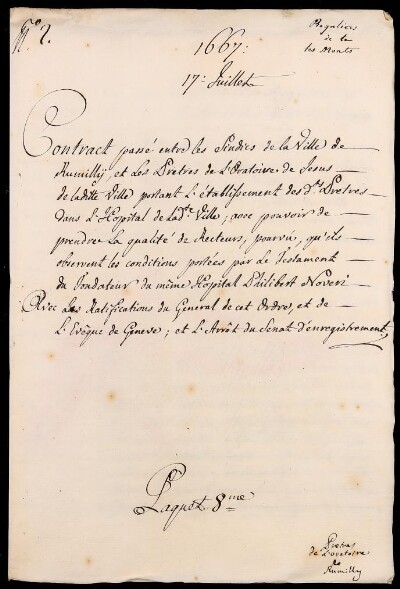 N.° 2.
Reguliers
de la
les Monts
1667:
17: Juillet
Contract passé entre les Sindics de la Ville de
Rumilly, et Les Pretres de L'Oratoire de Jesus
de ladite Ville portant L'établissement des d.ts Pretres
dans L'Hopital de lad.te Ville; avec pouvoir de
prendre La qualité de Recteurs, pourvû, qu'ils
observent les conditions portées par Le Testament
du fondateur du même Hopital Philibert Noveri
Avec Les Ratifications du General de cet Ordre, et de
L'Evêque de Geneve; et L'Arrêt du Senat d'enregistrement
Paquet 8.me
Pretres
de L'oratoire
de
Rumilly